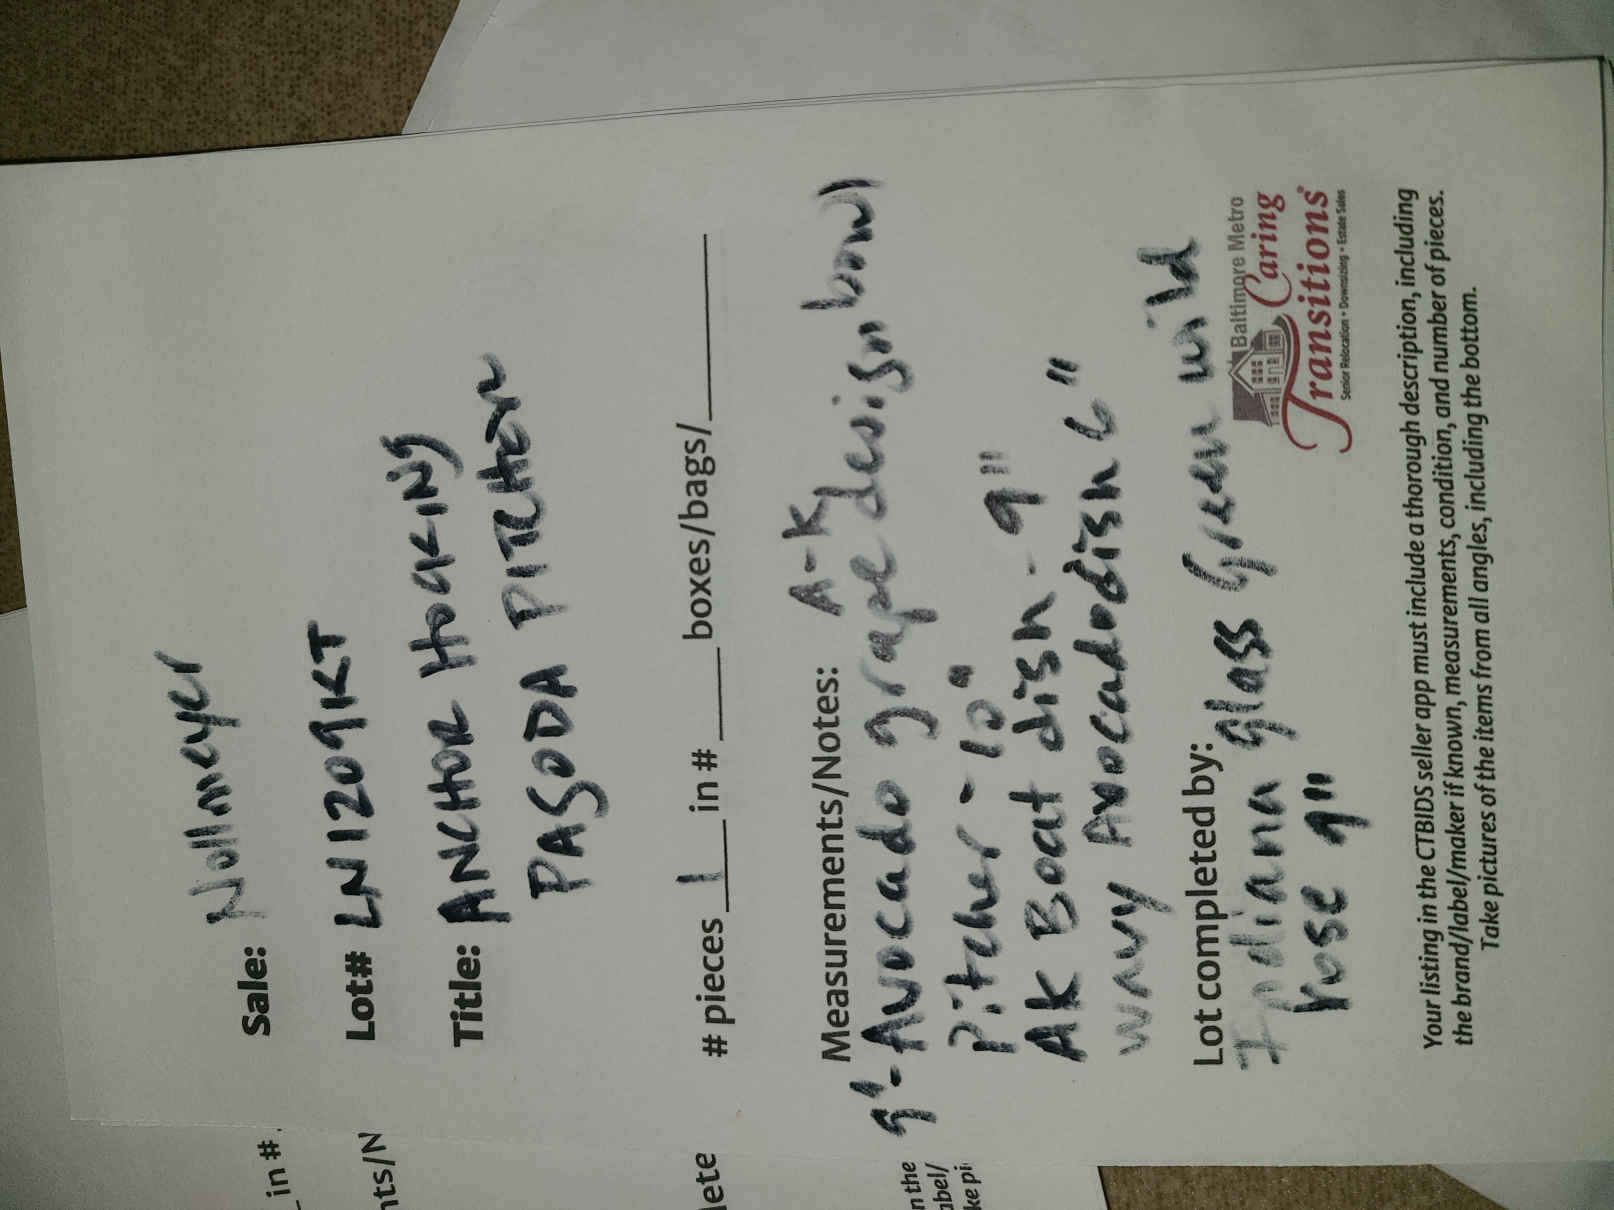 Sale: Nollmeyer
Lot# LN1209KT
Title: ANCHOR HOCKING
PAGODA PITCHER
# pieces 1 in # ____ boxes/bags/____
Measurements/Notes: A-K
9"-Avocado grape design bowl
Pitcher - 10"
AK Boat dish - 9"
wavy Avocado dish 6"
Lot completed by:
Indiana glass Green wild
rose 9"
Baltimore Metro
Caring
Transitions®
Senior Relocation • Downsizing • Estate Sales
Your listing in the CTBIDS seller app must include a thorough description, including
the brand/label/maker if known, measurements, condition, and number of pieces.
Take pictures of the items from all angles, including the bottom.
in #
nts/N
lete
n the
abel/
ke pi